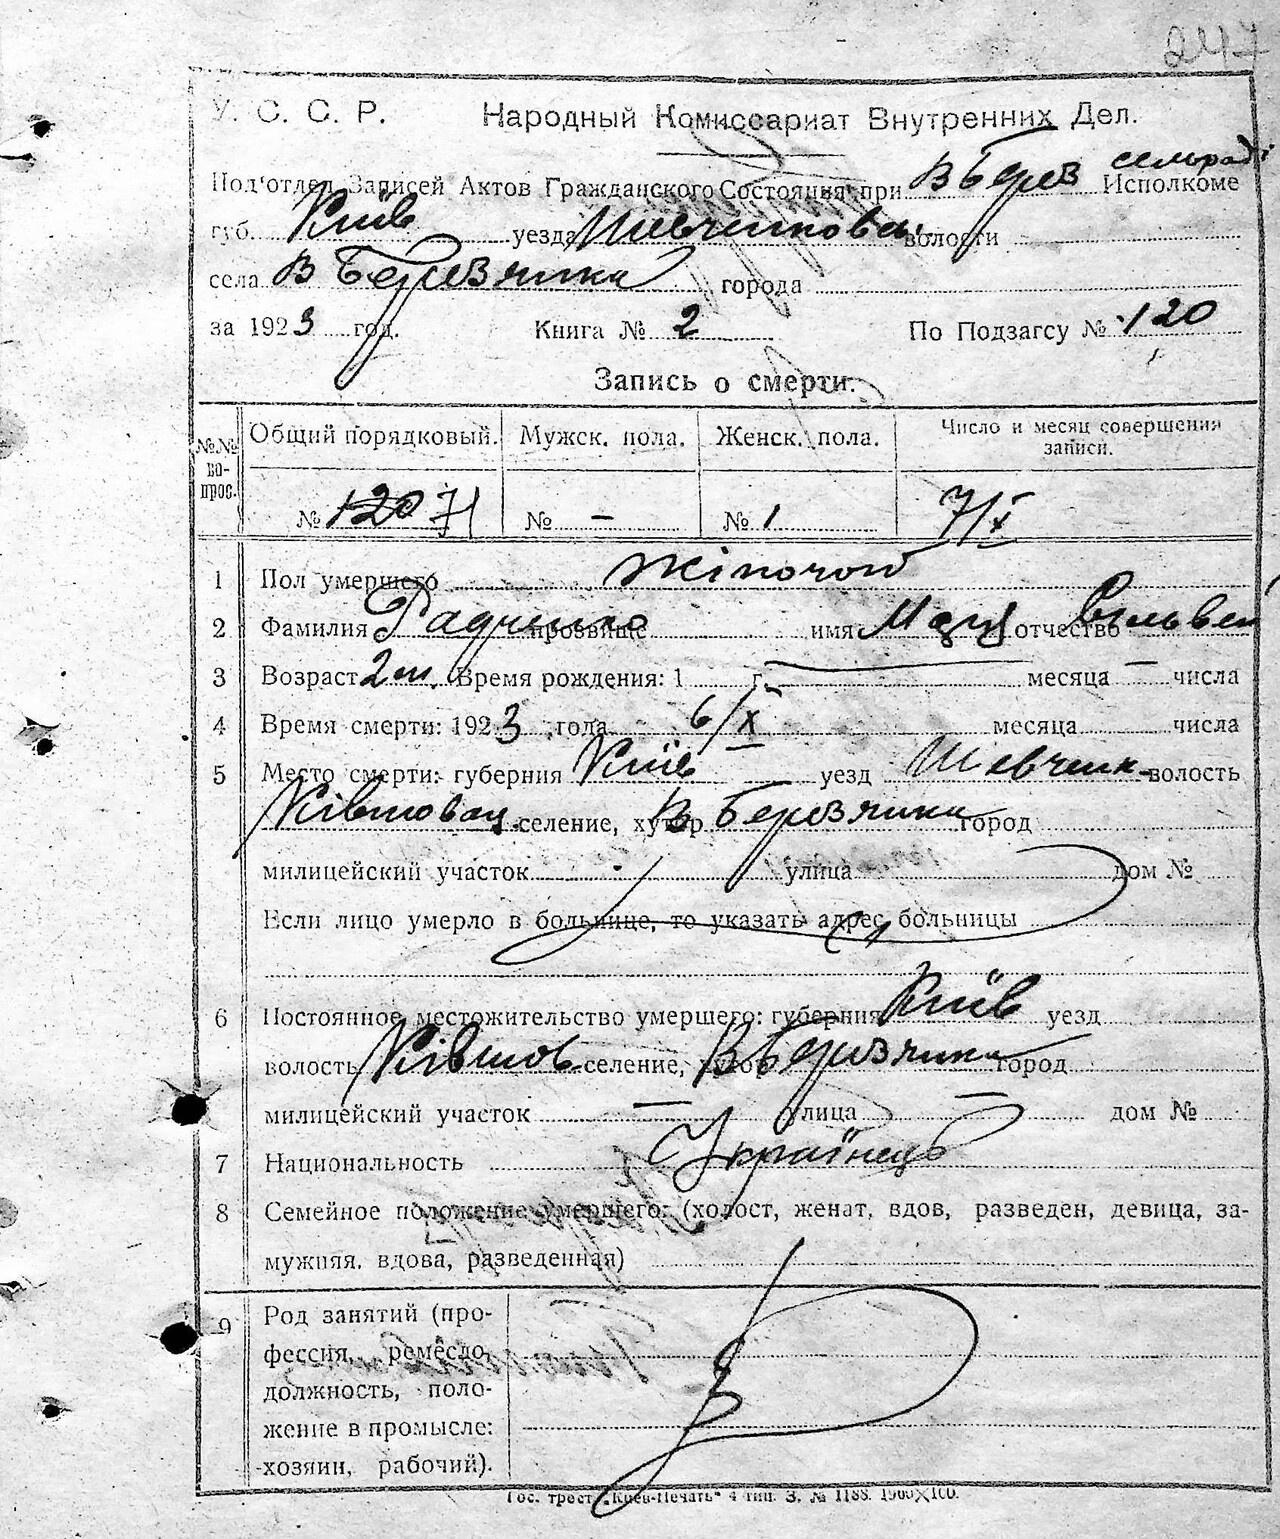 247
У. С. С. Р. Народный Комиссариат Внутренних Дел.
Под'отдел Записей Актов Гражданского Состояния при В Берез сельраді Исполкоме
губ. Київ уезда Шевченковск волости
села В Березянка города
за 1923 год. Книга № 2 По Подзагсу № 120
Запись о смерти.
№№ вопрос. Общий порядковый. Мужск. пола. Женск. пола. Число и месяц совершения записи.
№ 120 71 № – № 1 7/X
1 Пол умершего жіночой
2 Фамилия Радченко прозвище имя отчество
3 Возраст 2 м. Время рождения: 1 г. месяца – числа
4 Время смерти: 1923 года 6/X месяца числа
5 Место смерти: губерния Київ уезд Шевченк. волость
Ківшовац. селение, хутор В Березянка город
милицейский участок улица дом №
Если лицо умерло в больнице, то указать адрес больницы
6 Постоянное местожительство умершего: губерния Київ уезд
волость Ківшов. селение, хутор В Березянка город
милицейский участок – улица – дом №
7 Национальность Українець
8 Семейное положение умершего: (холост, женат, вдов, разведен, девица, за-
мужняя, вдова, разведенная)
9 Род занятий (про-
фессия, ремесло,
должность, поло-
жение в промысле:
хозяин, рабочий).
Гос. трест „Киев-Печать" 4 тип. З. № 1188. 1000×100.